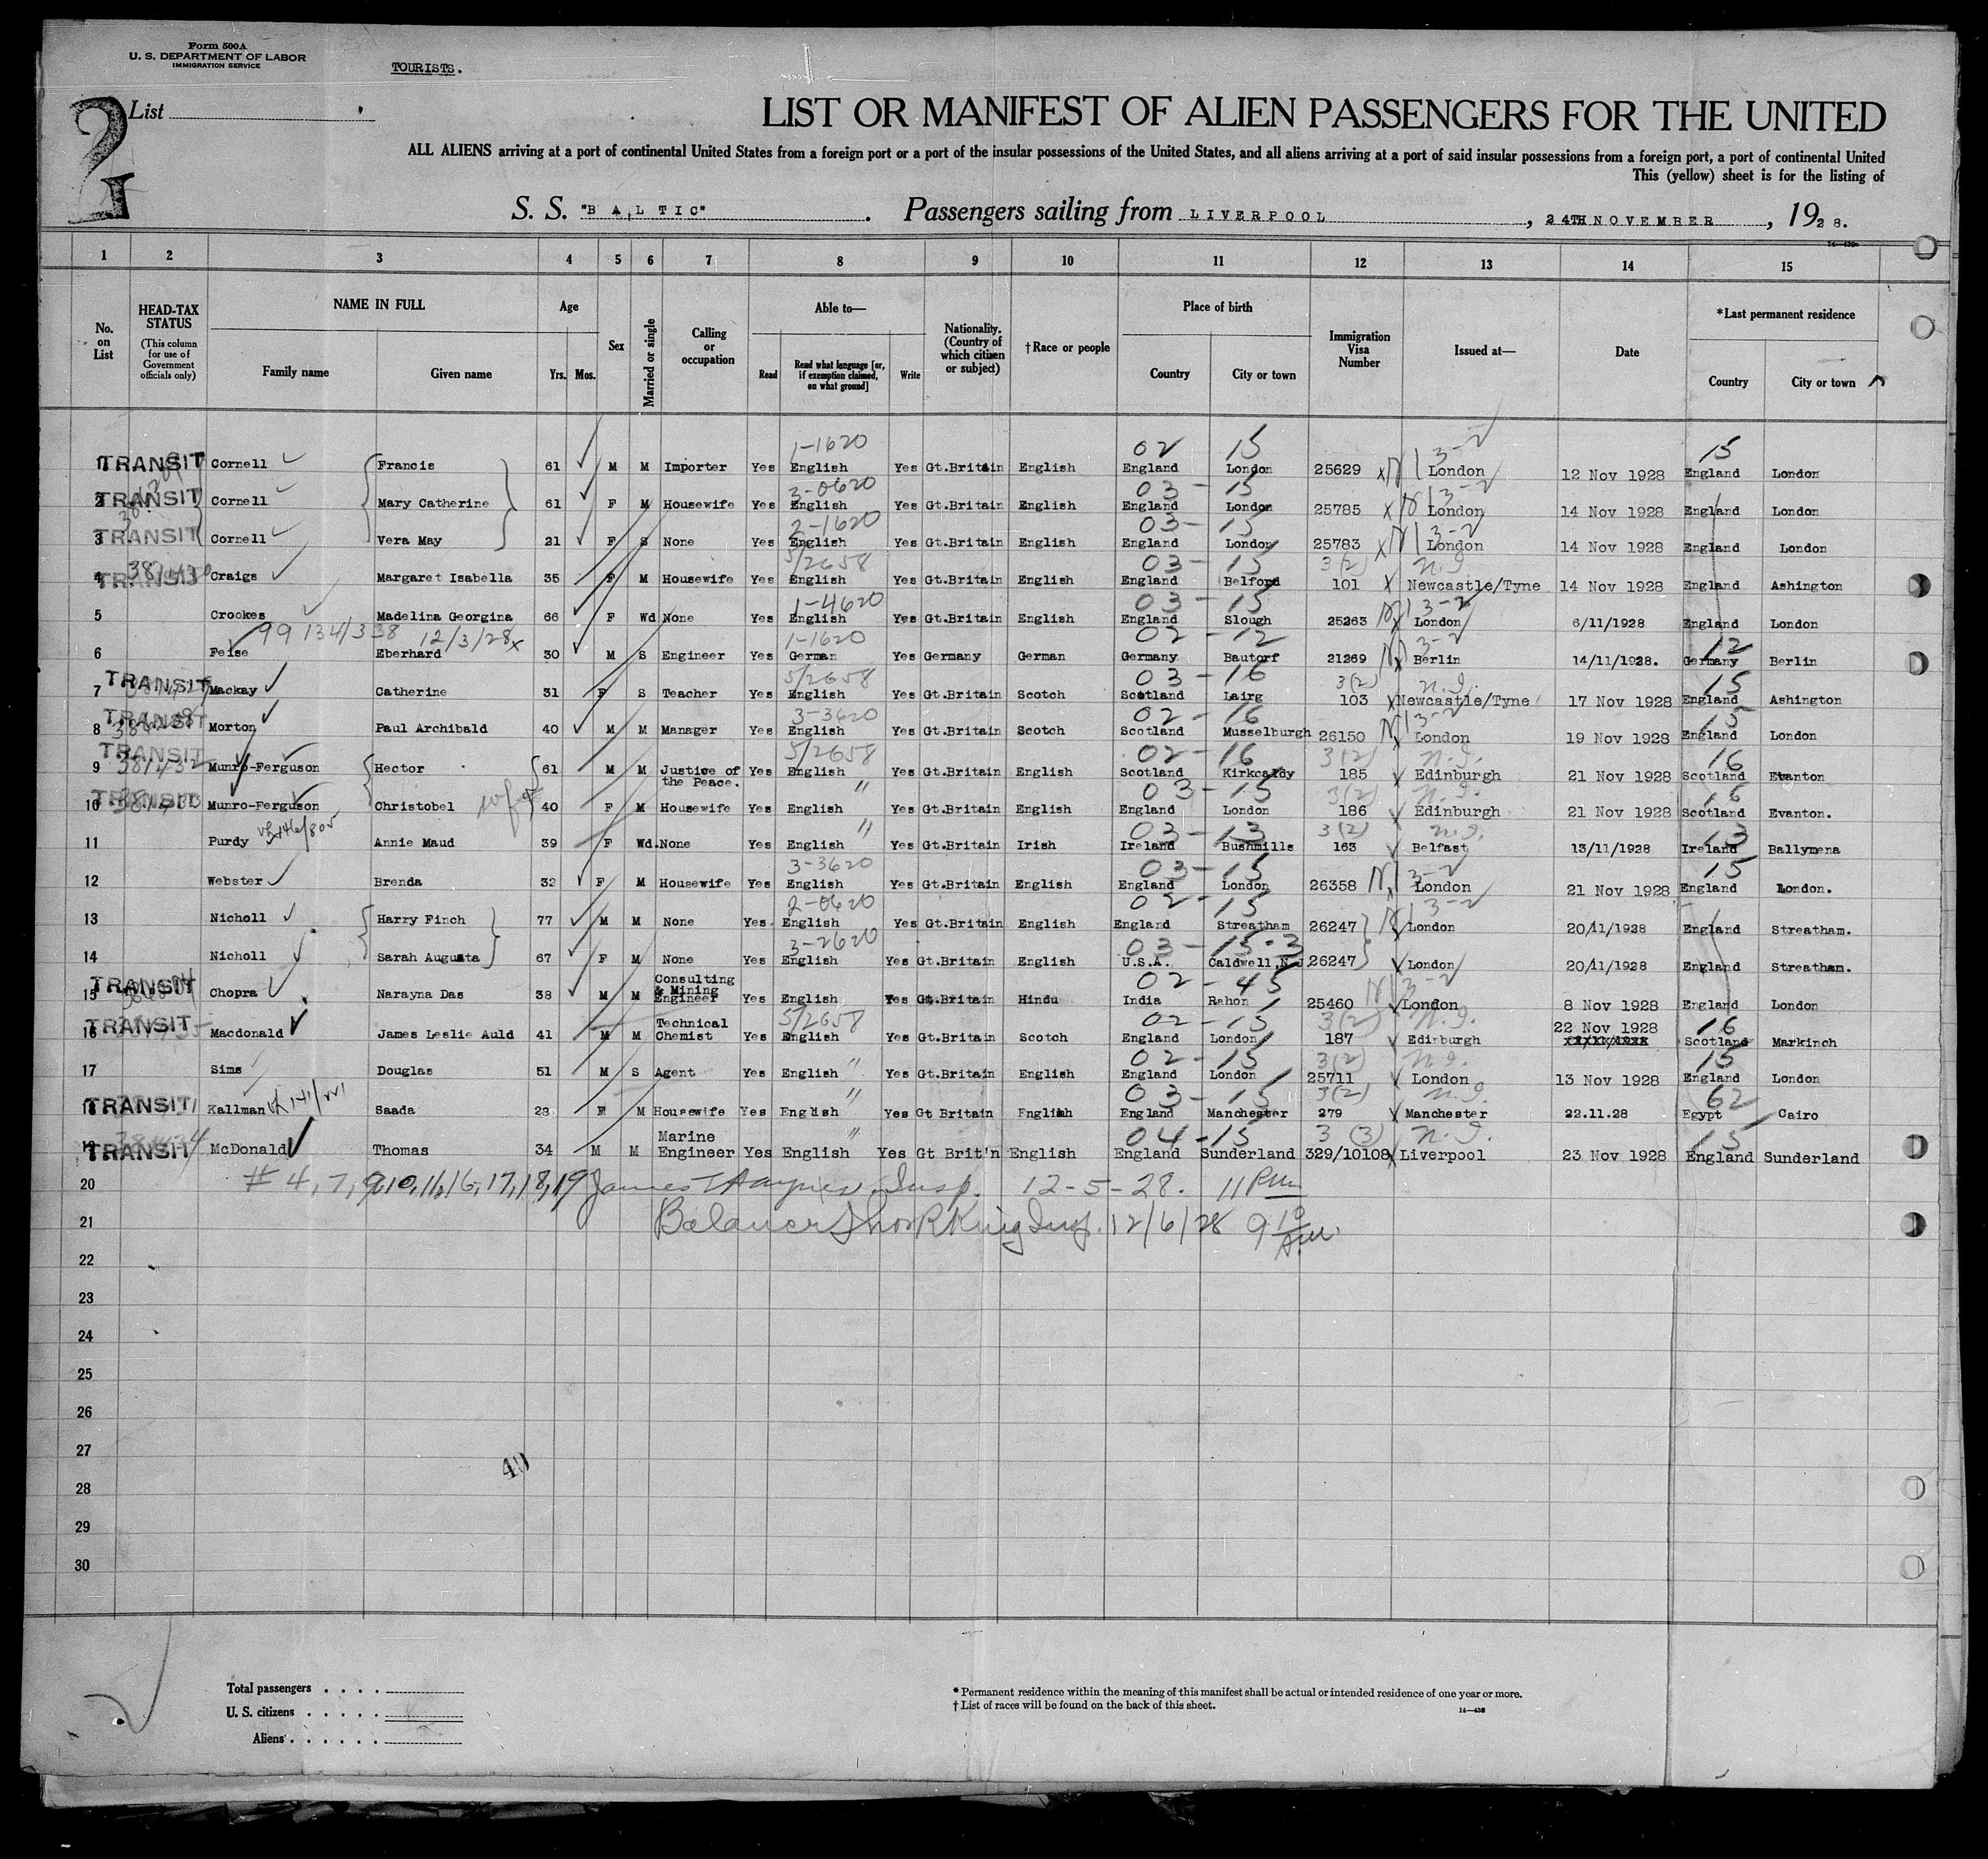 Form 500A
U. S. DEPARTMENT OF LABOR
IMMIGRATION SERVICE
TOURISTS.
2
1
List
LIST OR MANIFEST OF ALIEN PASSENGERS FOR THE UNITED
ALL ALIENS arriving at a port of continental United States from a foreign port or a port of the insular possessions of the United States, and all aliens arriving at a port of said insular possessions from a foreign port, a port of continental United
This (yellow) sheet is for the listing of
S. S. "BALTIC". Passengers sailing from LIVERPOOL, 24TH NOVEMBER, 1928.
1 2 3 4 5 6 7 8 9 10 11 12 13 14 15
No. on List
HEAD-TAX STATUS (This column for use of Government officials only)
NAME IN FULL Family name Given name
Age Yrs. Mos.
Sex
Married or single
Calling or occupation
Able to— Read Read what language [or, if exemption claimed, on what ground] Write
Nationality. (Country of which citizen or subject)
†Race or people
Place of birth Country City or town
Immigration Visa Number
Issued at—
Date
*Last permanent residence Country City or town
1-1620 02 15 3-2 15
1 TRANSIT Cornell Francis 61 M M Importer Yes English Yes Gt.Britain English England London 25629 London 12 Nov 1928 England London
3-0620 03-15 3-2
2 TRANSIT Cornell Mary Catherine 61 F M Housewife Yes English Yes Gt.Britain English England London 25785 London 14 Nov 1928 England London
2-1620 03-15 3-2
3 TRANSIT Cornell Vera May 21 F S None Yes English Yes Gt.Britain English England London 25783 London 14 Nov 1928 England London
5/2658 03-15 3(2) N.I.
4 TRANSIT Craigs Margaret Isabella 35 F M Housewife Yes English Yes Gt.Britain English England Belford 101 Newcastle/Tyne 14 Nov 1928 England Ashington
1-4620 03-15 3-2
5 Crookes Madelina Georgina 66 F Wd None Yes English Yes Gt.Britain English England Slough 25263 London 6/11/1928 England London
99 134/338 12/3/28 1-1620 02-12 3-2 12
6 Feise Eberhard 30 M S Engineer Yes German Yes Germany German Germany Bautorf 21269 Berlin 14/11/1928. Germany Berlin
5/2658 03-16 3(2) N.I. 15
7 TRANSIT Mackay Catherine 31 F S Teacher Yes English Yes Gt.Britain Scotch Scotland Lairg 103 Newcastle/Tyne 17 Nov 1928 England Ashington
3-3620 02-16 3-2 15
8 TRANSIT Morton Paul Archibald 40 M M Manager Yes English Yes Gt.Britain Scotch Scotland Musselburgh 26150 London 19 Nov 1928 England London
5/2658 02-16 3(2) N.I. 16
9 TRANSIT Munro-Ferguson Hector 61 M M Justice of the Peace. Yes English Yes Gt.Britain English Scotland Kirkcaldy 185 Edinburgh 21 Nov 1928 Scotland Evanton
" 03-15 3(2) N.I. 16
10 TRANSIT Munro-Ferguson Christobel 40 F M Housewife Yes English Yes Gt.Britain English England London 186 Edinburgh 21 Nov 1928 Scotland Evanton.
" 03-13 3(2) N.I. 13
11 Purdy Annie Maud 39 F Wd. None Yes English Yes Gt.Britain Irish Ireland Bushmills 163 Belfast 13/11/1928 Ireland Ballymena
3-3620 03-15 3-2 15
12 Webster Brenda 32 F M Housewife Yes English Yes Gt.Britain English England London 26358 London 21 Nov 1928 England London.
2-0620 02-15 3-2
13 Nicholl Harry Finch 77 M M None Yes. English Yes Gt.Britain English England Streatham 26247 London 20/11/1928 England Streatham.
3-2620 03-15-3
14 Nicholl Sarah Augusta 67 F M None Yes English Yes Gt.Britain English U.S.A. Caldwell,N.J. 26247 London 20/11/1928 England Streatham.
02-45 3-2
15 TRANSIT Chopra Narayna Das 38 M M Consulting & Mining Engineer Yes English Yes Gt.Britain Hindu India Rahon 25460 London 8 Nov 1928 England London
5/2658 02-15 3(2) N.I. 16
16 TRANSIT Macdonald James Leslie Auld 41 M M Technical Chemist Yes English Yes Gt.Britain Scotch England London 187 Edinburgh 22 Nov 1928 Scotland Markinch
" 02-15 3(2) N.I. 15
17 Sims Douglas 51 M S Agent Yes English Yes Gt.Britain English England London 25711 London 13 Nov 1928 England London
" 03-15 3(2) N.I. 62
18 TRANSIT Kallman Saada 23 F M Housewife Yes English Yes Gt Britain English England Manchester 279 Manchester 22.11.28 Egypt Cairo
" 04-15 3(3) N.I. 15
19 TRANSIT McDonald Thomas 34 M M Marine Engineer Yes English Yes Gt Brit'n English England Sunderland 329/10108 Liverpool 23 Nov 1928 England Sunderland
20 # 4, 7, 9, 10, 11, 16, 17, 18, 19 James T Haynes Insp. 12-5-28. 11 PM
21 Balance Thos R King Insp. 12/6/28 9 10 AM
22
23
24
25
26
27
40
28
29
30
Total passengers . . . .
U. S. citizens . . . . .
Aliens . . . . . .
* Permanent residence within the meaning of this manifest shall be actual or intended residence of one year or more.
† List of races will be found on the back of this sheet.